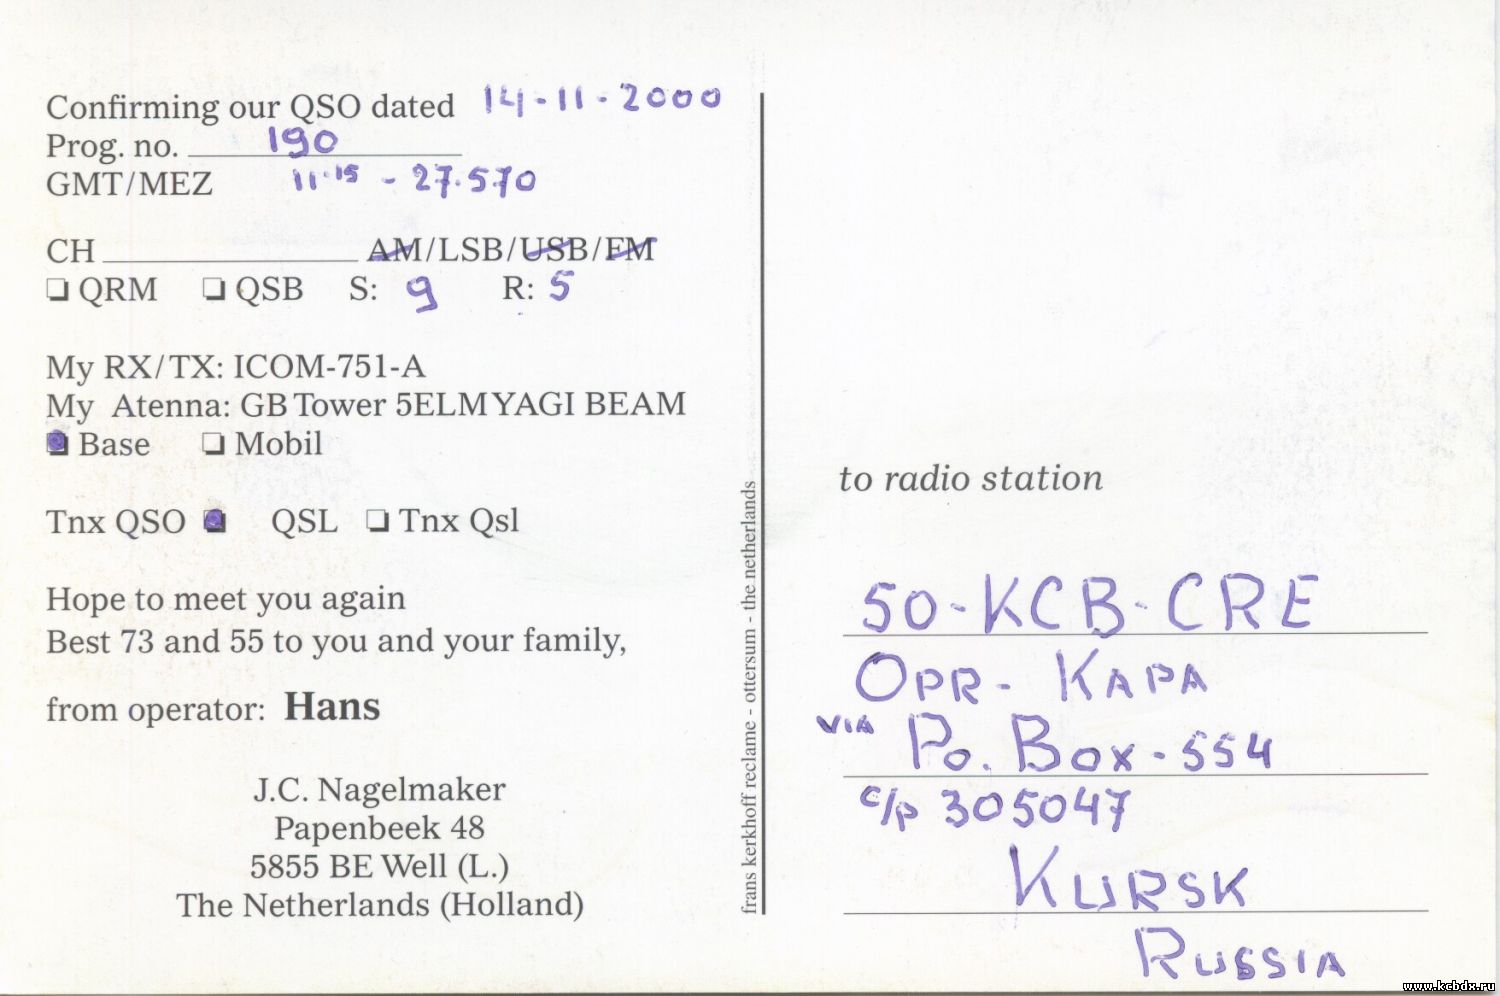 Confirming our QSO dated 14-11-2000
Prog. no. 190
GMT/MEZ 11.15 - 27.570
CH AM/LSB/USB/FM
QRM QSB S: 9 R: 5
My RX/TX: ICOM-751-A
My Atenna: GB Tower 5ELM YAGI BEAM
Base Mobil
Tnx QSO QSL Tnx Qsl
Hope to meet you again
Best 73 and 55 to you and your family,
from operator: Hans
J.C. Nagelmaker
Papenbeek 48
5855 BE Well (L.)
The Netherlands (Holland)
frans kerkhoff reclame - ottersum - the netherlands
to radio station
50-KCB-CRE
OPR- KAPA
VIA Po. Box - 554
c/p 305047
KURSK
RUSSIA
www.kcbdx.ru